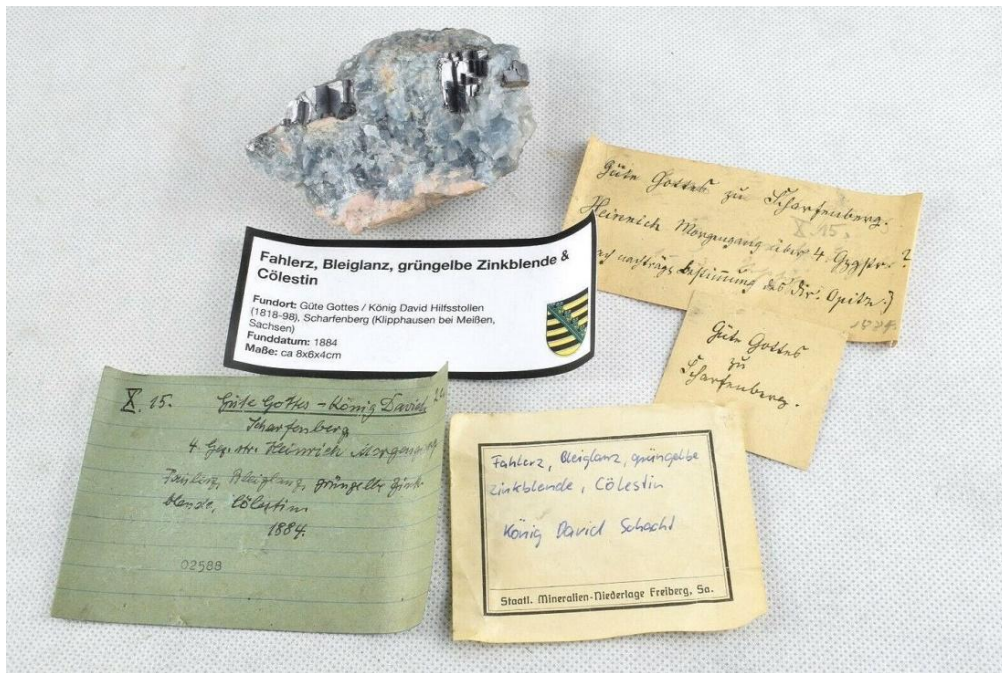 Fahlerz, Bleiglanz, grüngelbe Zinkblende &
Cölestin
Fundort: Güte Gottes / König David Hilfsstollen
(1818-98), Scharfenberg (Klipphausen bei Meißen,
Sachsen)
Funddatum: 1884
Maße: ca 8x6x4cm
Güte Gottes zu Scharfenberg.
X. 15.
Heinrich Morgengang über 4. Gzgstr. ?
nach nachträgl. Bestimmung des Dir. Opitz.)
1884.
Güte Gottes
zu
Scharfenberg.
X. 15. Güte Gottes - König David
Scharfenberg
4. Gez. str. Heinrich Morgengang
Fahlerz, Bleiglanz, grüngelbe Zink-
blende, Cölestin
1884.
02588
Fahlerz, Bleiglanz, grüngelbe
Zinkblende, Cölestin
König David Schacht
Staatl. Mineralien-Niederlage Freiberg, Sa.